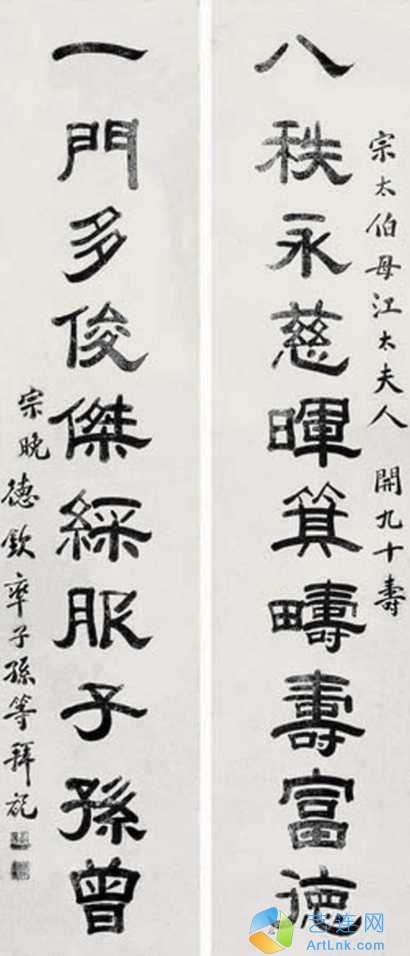 宗太伯母江太夫人 開九十壽
八秩永慈暉箕疇壽富德
一門多俊傑綵服子孫曾
宗晚德欽率子孫等拜祝
艺连网
ArtLnk.com